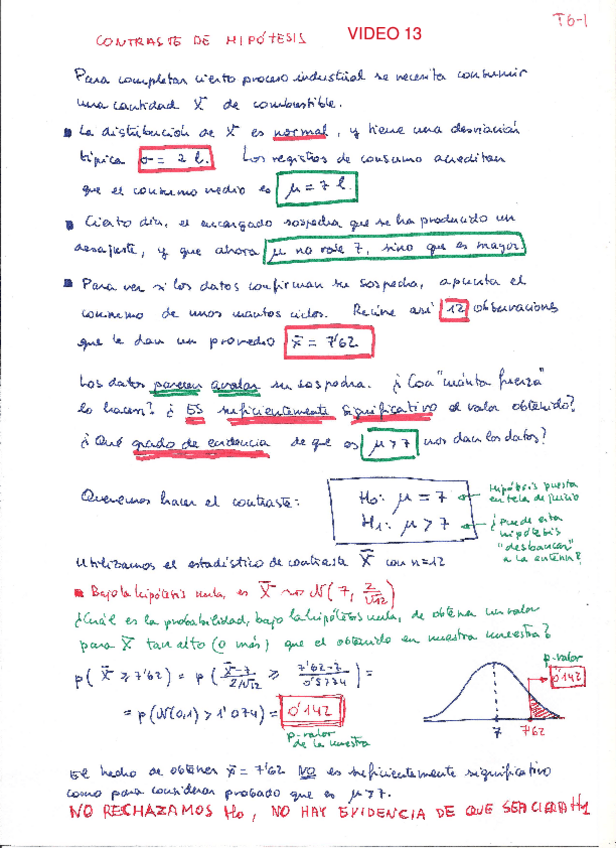 T6-1
CONTRASTE DE HIPÓTESIS VIDEO 13
Para completar cierto proceso industrial se necesita consumir
una cantidad X de combustible.
La distribución de X es normal, y tiene una desviación
típica σ = 2 l. Los registros de consumo acreditan
que el consumo medio es μ = 7 l.
Cierto día, el encargado sospecha que se ha producido un
desajuste, y que ahora μ no vale 7, sino que es mayor.
Para ver si los datos confirman su sospecha, apunta el
consumo de unos cuantos ciclos. Reúne así 12 observaciones
que le dan un promedio x̄ = 7'62
Los datos parecen avalar su sospecha. ¿Con "cuánta fuerza"
lo hacen? ¿ES suficientemente significativo el valor obtenido?
¿Qué grado de evidencia de que es μ > 7 nos dan los datos?
Queremos hacer el contraste:
H₀: μ = 7 ← Hipótesis puesta
en tela de juicio
H₁: μ > 7 ← ¿Puede esta
hipótesis
"desbancar"
a la anterior?
Utilizamos el estadístico de contraste X̄ con n=12
Bajo la hipótesis nula, es X̄ ~ N(7, 2/√12)
¿Cuál es la probabilidad, bajo la hipótesis nula, de obtener un valor
para X̄ tan alto (o más) que el obtenido en nuestra muestra?
p(X̄ ≥ 7'62) = p( (X̄-7)/(2/√12) ≥ (7'62-7)/0'5774 ) =
= p(N(0,1) > 1'074) = 0'142
p-valor
de la muestra
p-valor
0'142
7 7'62
El hecho de obtener x̄ = 7'62 NO es suficientemente significativo
como para considerar probado que es μ > 7.
NO RECHAZAMOS H₀, NO HAY EVIDENCIA DE QUE SEA CIERTA H₁